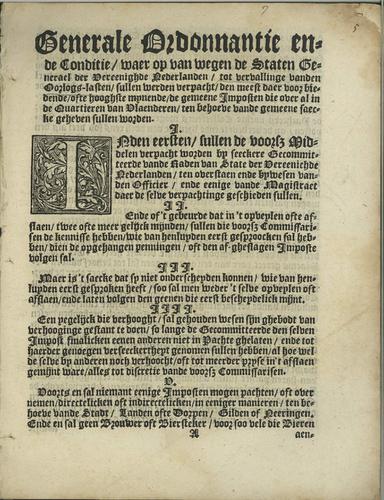 5
Generale Ordonnantie en-
de Conditie / waer op van wegen de Staten Ge-
nerael der Vereenighde Nederlanden / tot vervallinge vanden
Oorlogs-lasten / sullen werden verpacht / den meest daer voor bie-
dende / ofte hooghste mijnende / de gemeene Imposten die over al in
de Quartieren van Vlaenderen / ten behoeve vande gemeene saec-
ke geheven sullen worden.
I.
INden eersten / sullen de voorsz Mid-
delen verpacht worden by seeckere Gecommit-
teerde vande Raden van State der Vereenichde
Nederlanden / ten overstaen ende bywesen van-
den Officier / ende eenige vande Magistraet
daer de selve verpachtinge geschieden sullen.
II.
Ende of't gebeurde dat in't opveylen ofte af-
slaen / twee ofte meer gelijck mijnden / sullen die voorsz Commissari-
sen de kennisse hebben / wie van henluyden eerst gesproocken sal heb-
ben / dien de opgehangen penningen / oft den afgheslagen Imposte
volgen sal.
III.
Maer is't saecke dat sy niet onderscheyden konnen / wie van hen-
luyden eerst gesproken heeft / soo sal men weder't selve opveylen oft
afslaen / ende laten volgen den geenen die eerst bescheydelick mijnt.
IIII.
Een yegelijck die verhooght / sal gehouden wesen sijn ghebodt van
verhooginge gestant te doen / so lange de Gecommitteerde den selven
Impost finalicken eenen anderen niet in Pachte ghelaten / ende tot
haerder genoegen verseeckertheyt genomen sullen hebben / al hoe wel
de selve by anderen noch verhoocht / oft tot meerder pryse in't afslaen
gemijnt ware / alles tot discretie vande voorsz Commissarisen.
V.
Voorts en sal niemant eenige Imposten mogen pachten / oft over
nemen / directelicken oft indirectelicken / in eeniger manieren / ten be-
hoeve vande Stadt / Landen ofte Dorpen / Gilden of Neeringen.
Ende en sal geen Brouwer oft Biersteker / voor soo vele die Bieren
A aen-